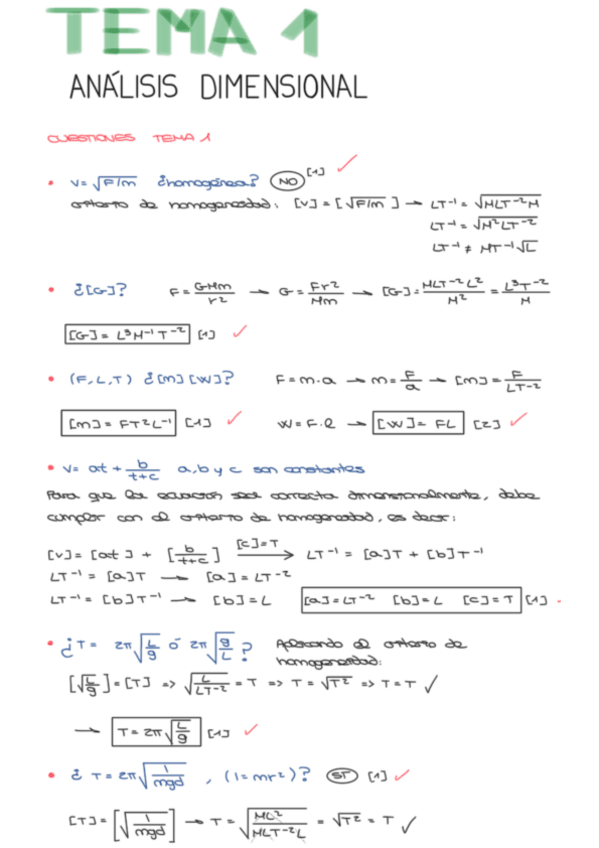 TEMA 1
ANÁLISIS DIMENSIONAL
CUESTIONES TEMA 1
• v = √F/m ¿homogénea? NO [1] ✓
criterio de homogeneidad: [v] = [√F/m] → LT⁻¹ = √MLT⁻²M
LT⁻¹ = √M²LT⁻²
LT⁻¹ ≠ MT⁻¹√L
• ¿[G]? F = GMm/r² → G = Fr²/Mm → [G] = MLT⁻²L²/M² = L³T⁻²/M
[G] = L³M⁻¹T⁻² [1] ✓
• (F,L,T) ¿[m] [W]? F = m·a → m = F/a → [m] = F/LT⁻²
[m] = FT²L⁻¹ [1] ✓ W = F·l → [W] = FL [2] ✓
• v = at + b/t+c a, b y c son constantes
Para que la ecuación sea correcta dimensionalmente, debe
cumplir con el criterio de homogeneidad, es decir:
[v] = [at] + [b/t+c] [c]=T → LT⁻¹ = [a]T + [b]T⁻¹
LT⁻¹ = [a]T → [a] = LT⁻²
LT⁻¹ = [b]T⁻¹ → [b] = L [a] = LT⁻² [b] = L [c] = T [1]
• ¿T = 2π√L/g ó 2π√g/L? Aplicando el criterio de
homogeneidad:
[√L/g] = [T] => √L/LT⁻² = T => T = √T² => T = T ✓
→ T = 2π√L/g [1] ✓
• ¿T = 2π√I/mgd, (I = mr²)? SÍ [1] ✓
[T] = [√I/mgd] → T = √ML²/MLT⁻²L = √T² = T ✓